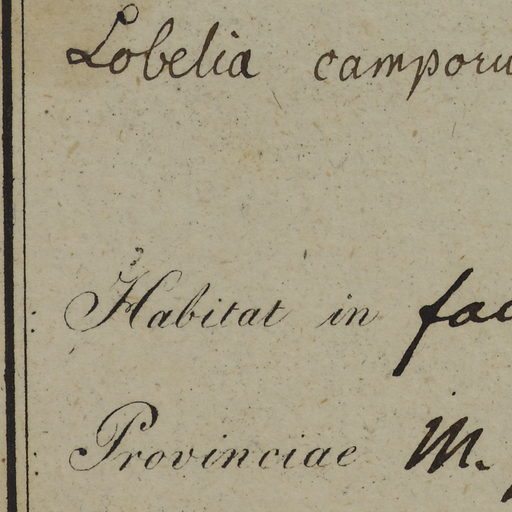 Lobelia camporu
Habitat in fac
Provinciae M.